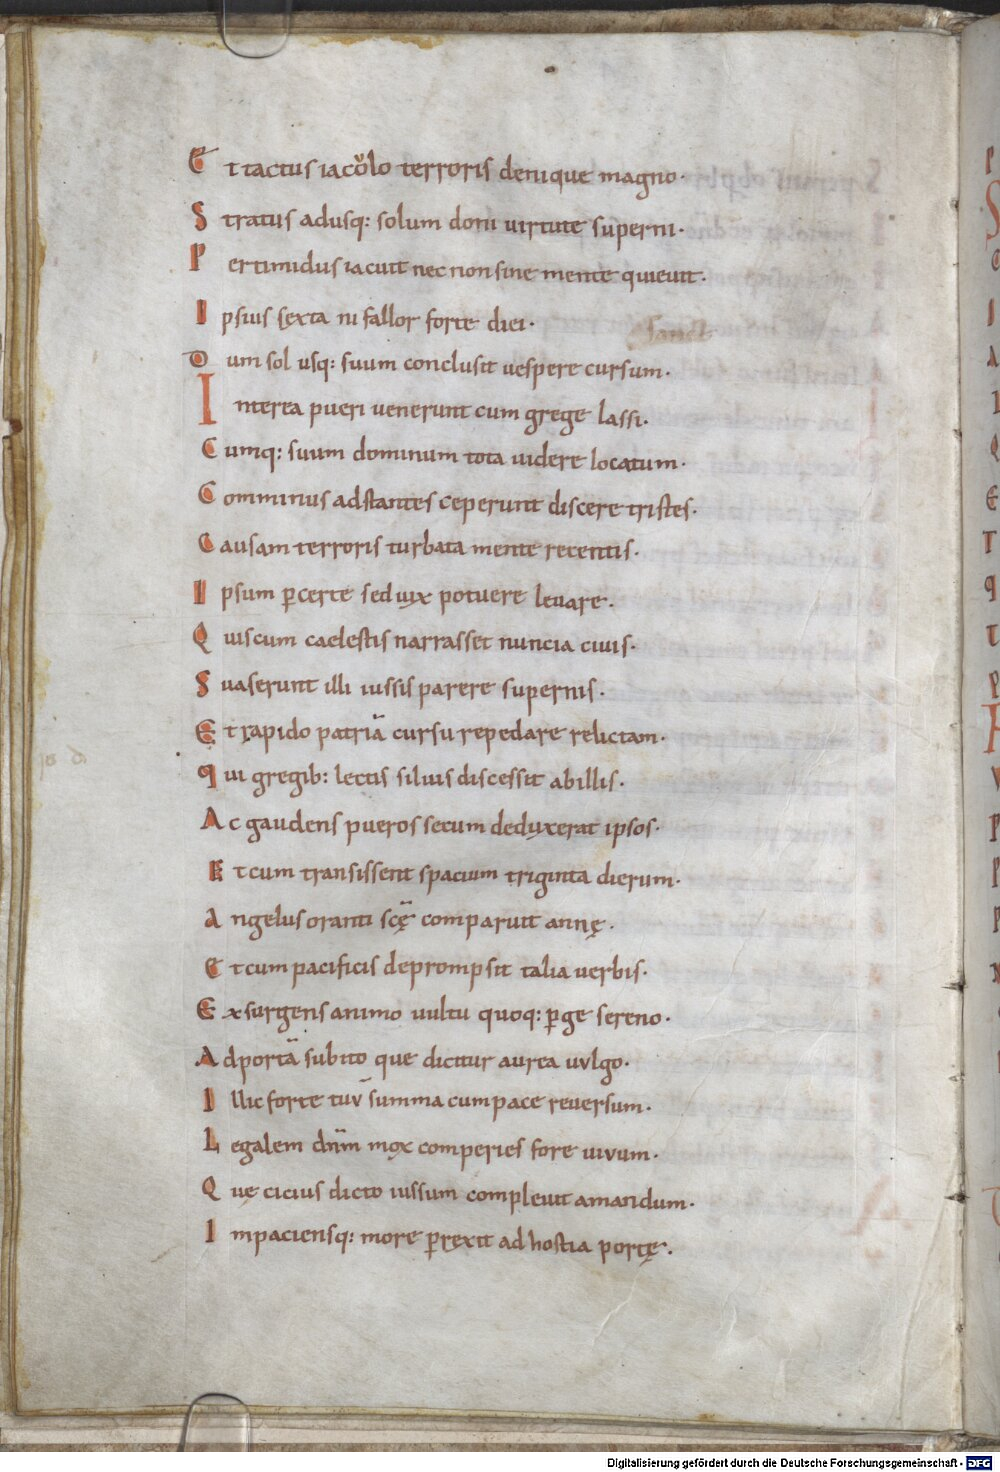 Et tactus iaculo terroris denique magno·
Stratus adusq: solum domi virtute superni·
Pertimidus iacuit nec non sine mente quieuit·
Ipsius sexta ni fallor forte diei·
Dum sol usq: suum conclusit uespere cursum·
Interea pueri venerunt cum grege lassi·
Cumq: suum dominum tota uidere locatum·
Comminus adstantes ceperunt discere tristes·
Causam terroris turbata mente recentis·
Ipsum ꝑcerte sed uix potuere leuare·
Quis cum caelestis narrasset nuncia ciuis·
Suaserunt illi iussis parere supernis·
Et rapido patriā cursu repedare relictam·
Qui gregib: lectis siluis discessit ab illis·
Ac gaudens pueros secum deduxerat ipsos·
Et cum transissent spacium triginta dierum·
Angelus oranti scę comparuit annę·
Et cum pacificis deprompsit talia uerbis·
Exsurgens animo uultu quoq: ꝑge sereno·
Ad portā subito que dicitur aurea uulgo·
Illic forte tuū summa cum pace reuersum·
Legalem dn̄m mox comperies fore uiuum·
Quę cicius dicto iussum compleuit amandum·
Impaciensq: more ꝑrexit ad hostia portę·
Digitalisierung gefördert durch die Deutsche Forschungsgemeinschaft - DFG